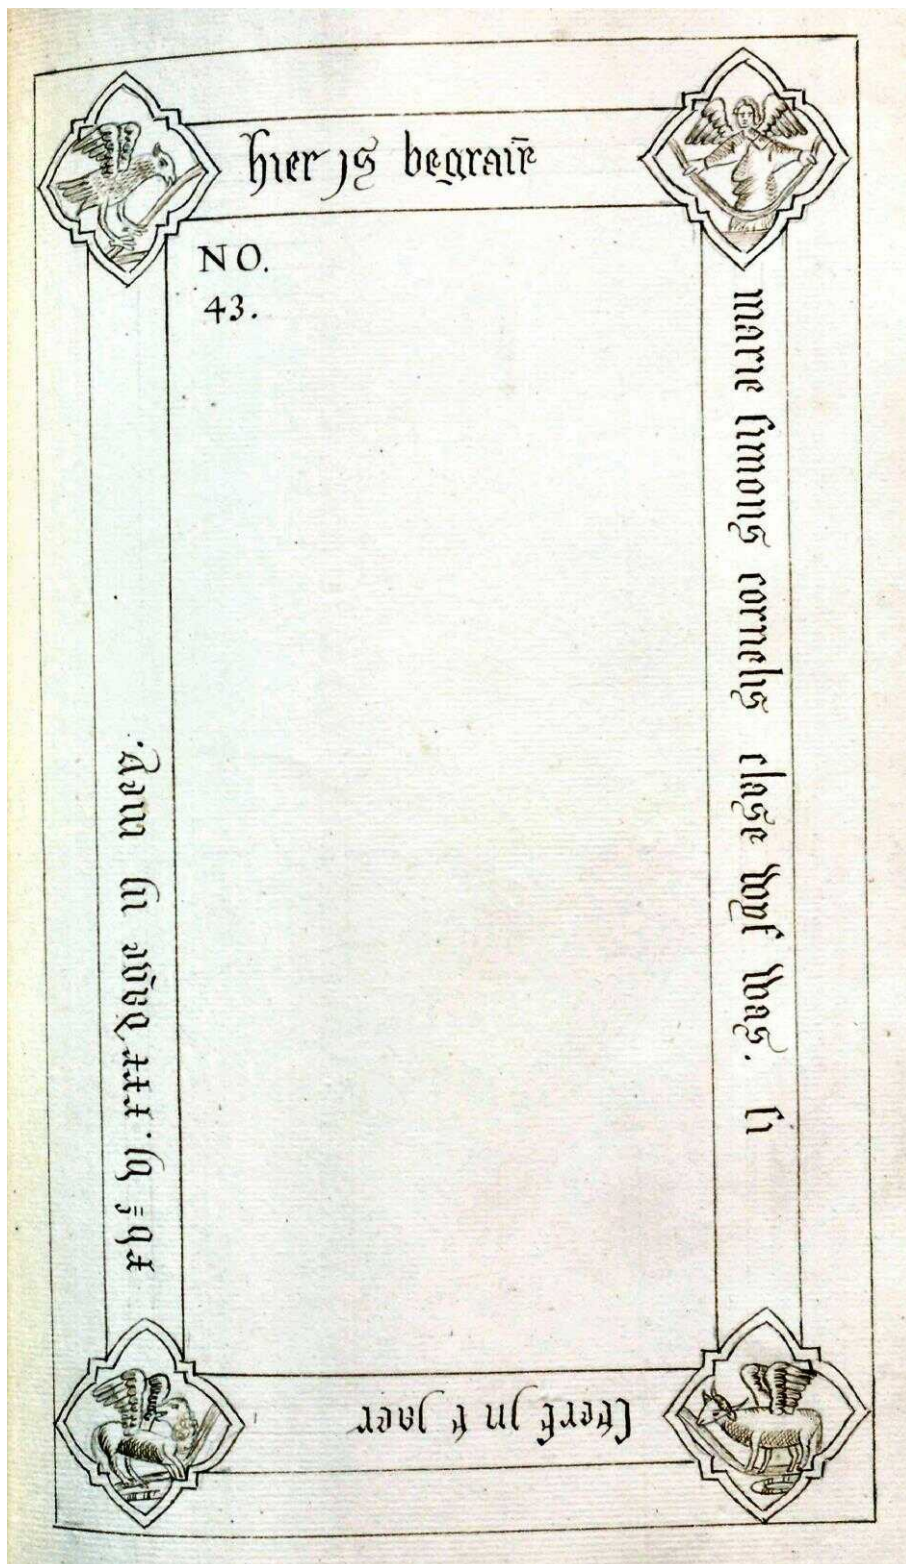 hier js begraūē
NO.
43.
marie simons cornelis clase wyf was. si
sterf jn t jaer
xvc vj. xxx dage in mey.